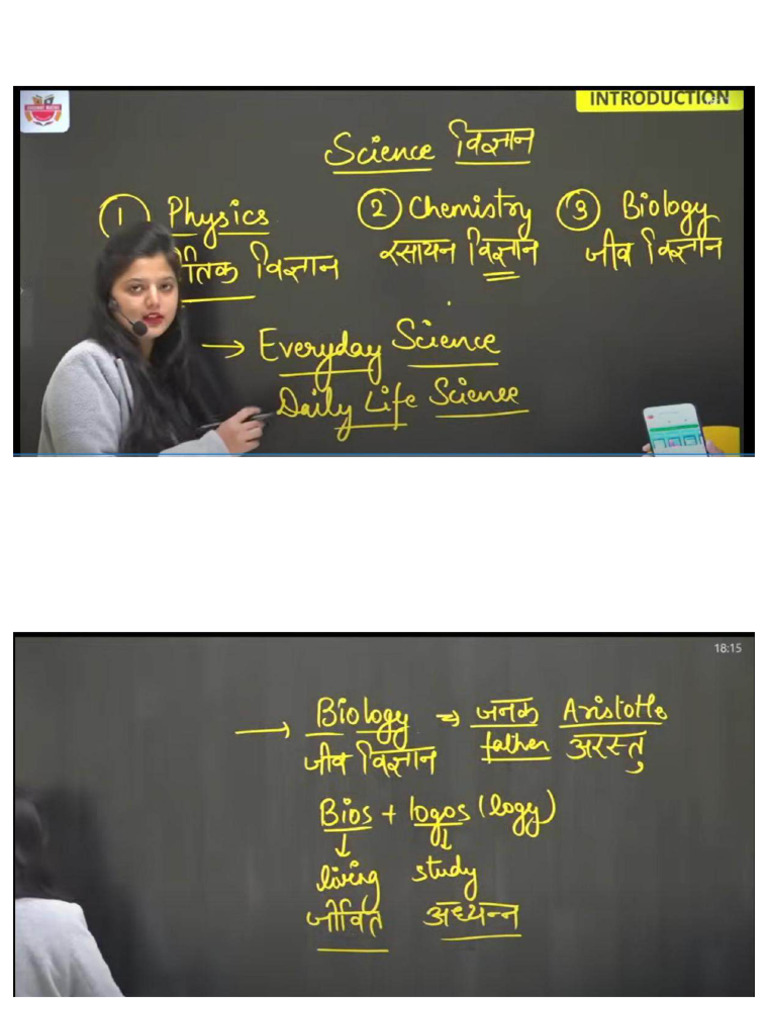 INTRODUCTION
Science विज्ञान
① Physics ② Chemistry ③ Biology
तिक विज्ञान रसायन विज्ञान जीव विज्ञान
→ Everyday Science
Daily Life Science
18:15
→ Biology => जनक Aristotle
जीव विज्ञान father अरस्तु
Bios + logos (logy)
↓ ↓
living study
जीवित अध्यन्न